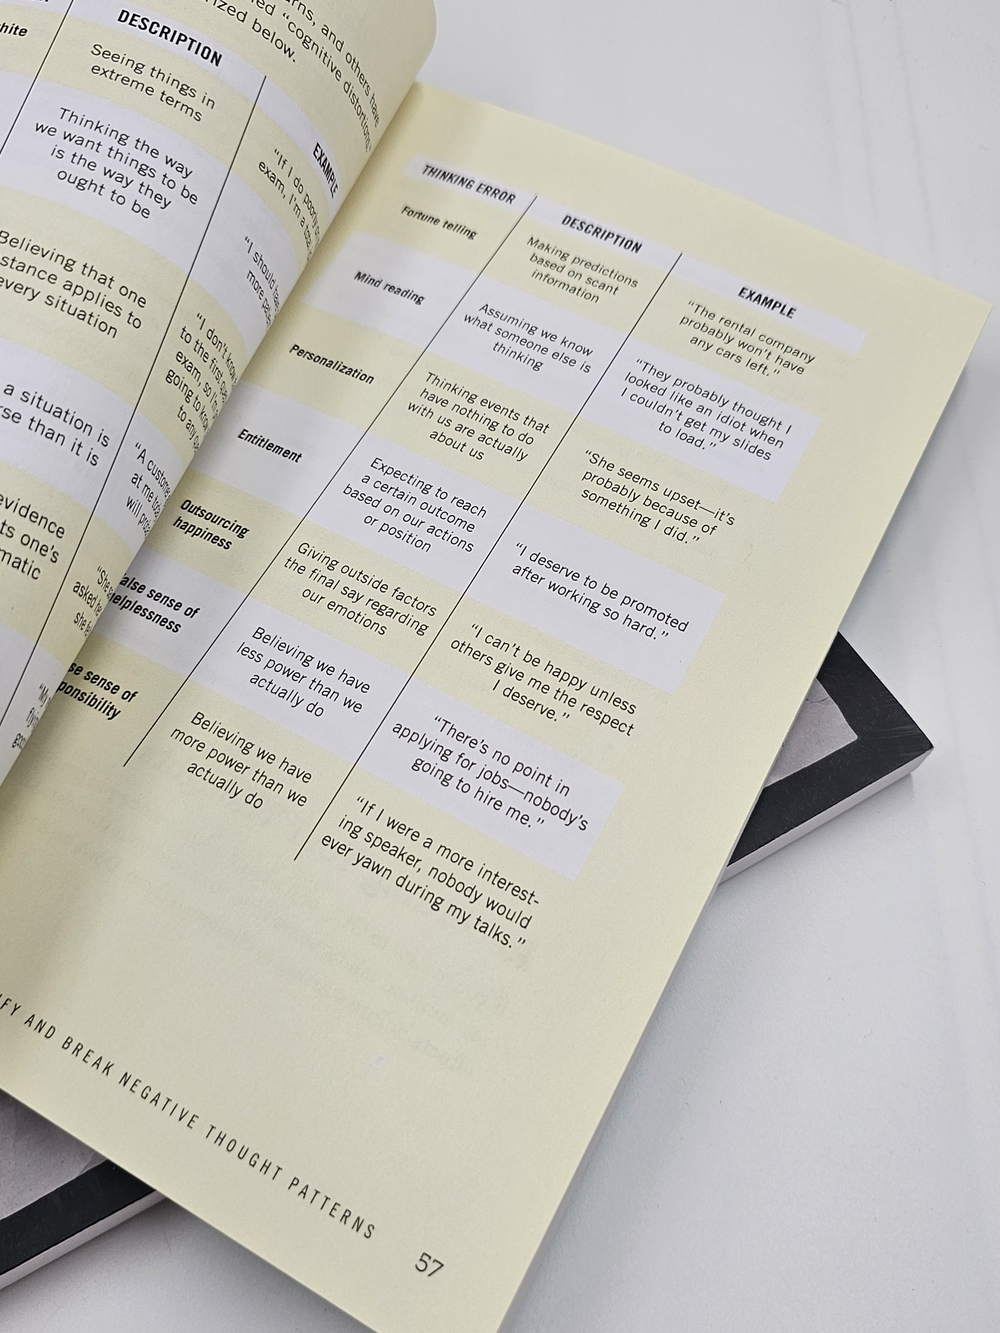 rns, and others have
ed "cognitive distortions,"
rized below.
DESCRIPTION
EXAMPLE
hite
Seeing things in
extreme terms
"If I do poorly
exam, I'm a
Thinking the way
we want things to be
is the way they
ought to be
"I should
more
Believing that one
stance applies to
every situation
"I don't know
to the first
exam, so I'm
going to
to any
a situation is
rse than it is
"A
at me
will
evidence
ts one's
matic
"She
asked
she
THINKING ERROR
DESCRIPTION
EXAMPLE
Fortune telling
Making predictions
based on scant
information
"The rental company
probably won't have
any cars left."
Mind reading
Assuming we know
what someone else is
thinking
"They probably thought I
looked like an idiot when
I couldn't get my slides
to load."
Personalization
Thinking events that
have nothing to do
with us are actually
about us
"She seems upset—it's
probably because of
something I did."
Entitlement
Expecting to reach
a certain outcome
based on our actions
or position
"I deserve to be promoted
after working so hard."
Outsourcing
happiness
Giving outside factors
the final say regarding
our emotions
"I can't be happy unless
others give me the respect
I deserve."
alse sense of
elplessness
Believing we have
less power than we
actually do
"There's no point in
applying for jobs—nobody's
going to hire me."
se sense of
ponsibility
Believing we have
more power than we
actually do
"If I were a more interest-
ing speaker, nobody would
ever yawn during my talks."
IFY AND BREAK NEGATIVE THOUGHT PATTERNS
57